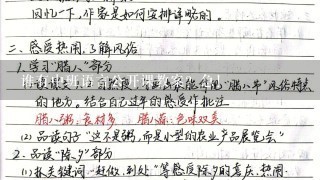 回忆一下,作家是如何安排详略的。
二、感受热闹,了解风俗
1.学习“腊八”部分
谁有中班语言公开课教案,急!
的地方。结合自己过年的感受作批注
腊八粥:食材多 腊八蒜:色味双美
(2)品读句子“这不是粥,而是小型的农业产品展览会”
2.品读“除夕”部分
(1)抓关键词“赶做、到处”等感受除夕的喜庆、热闹.